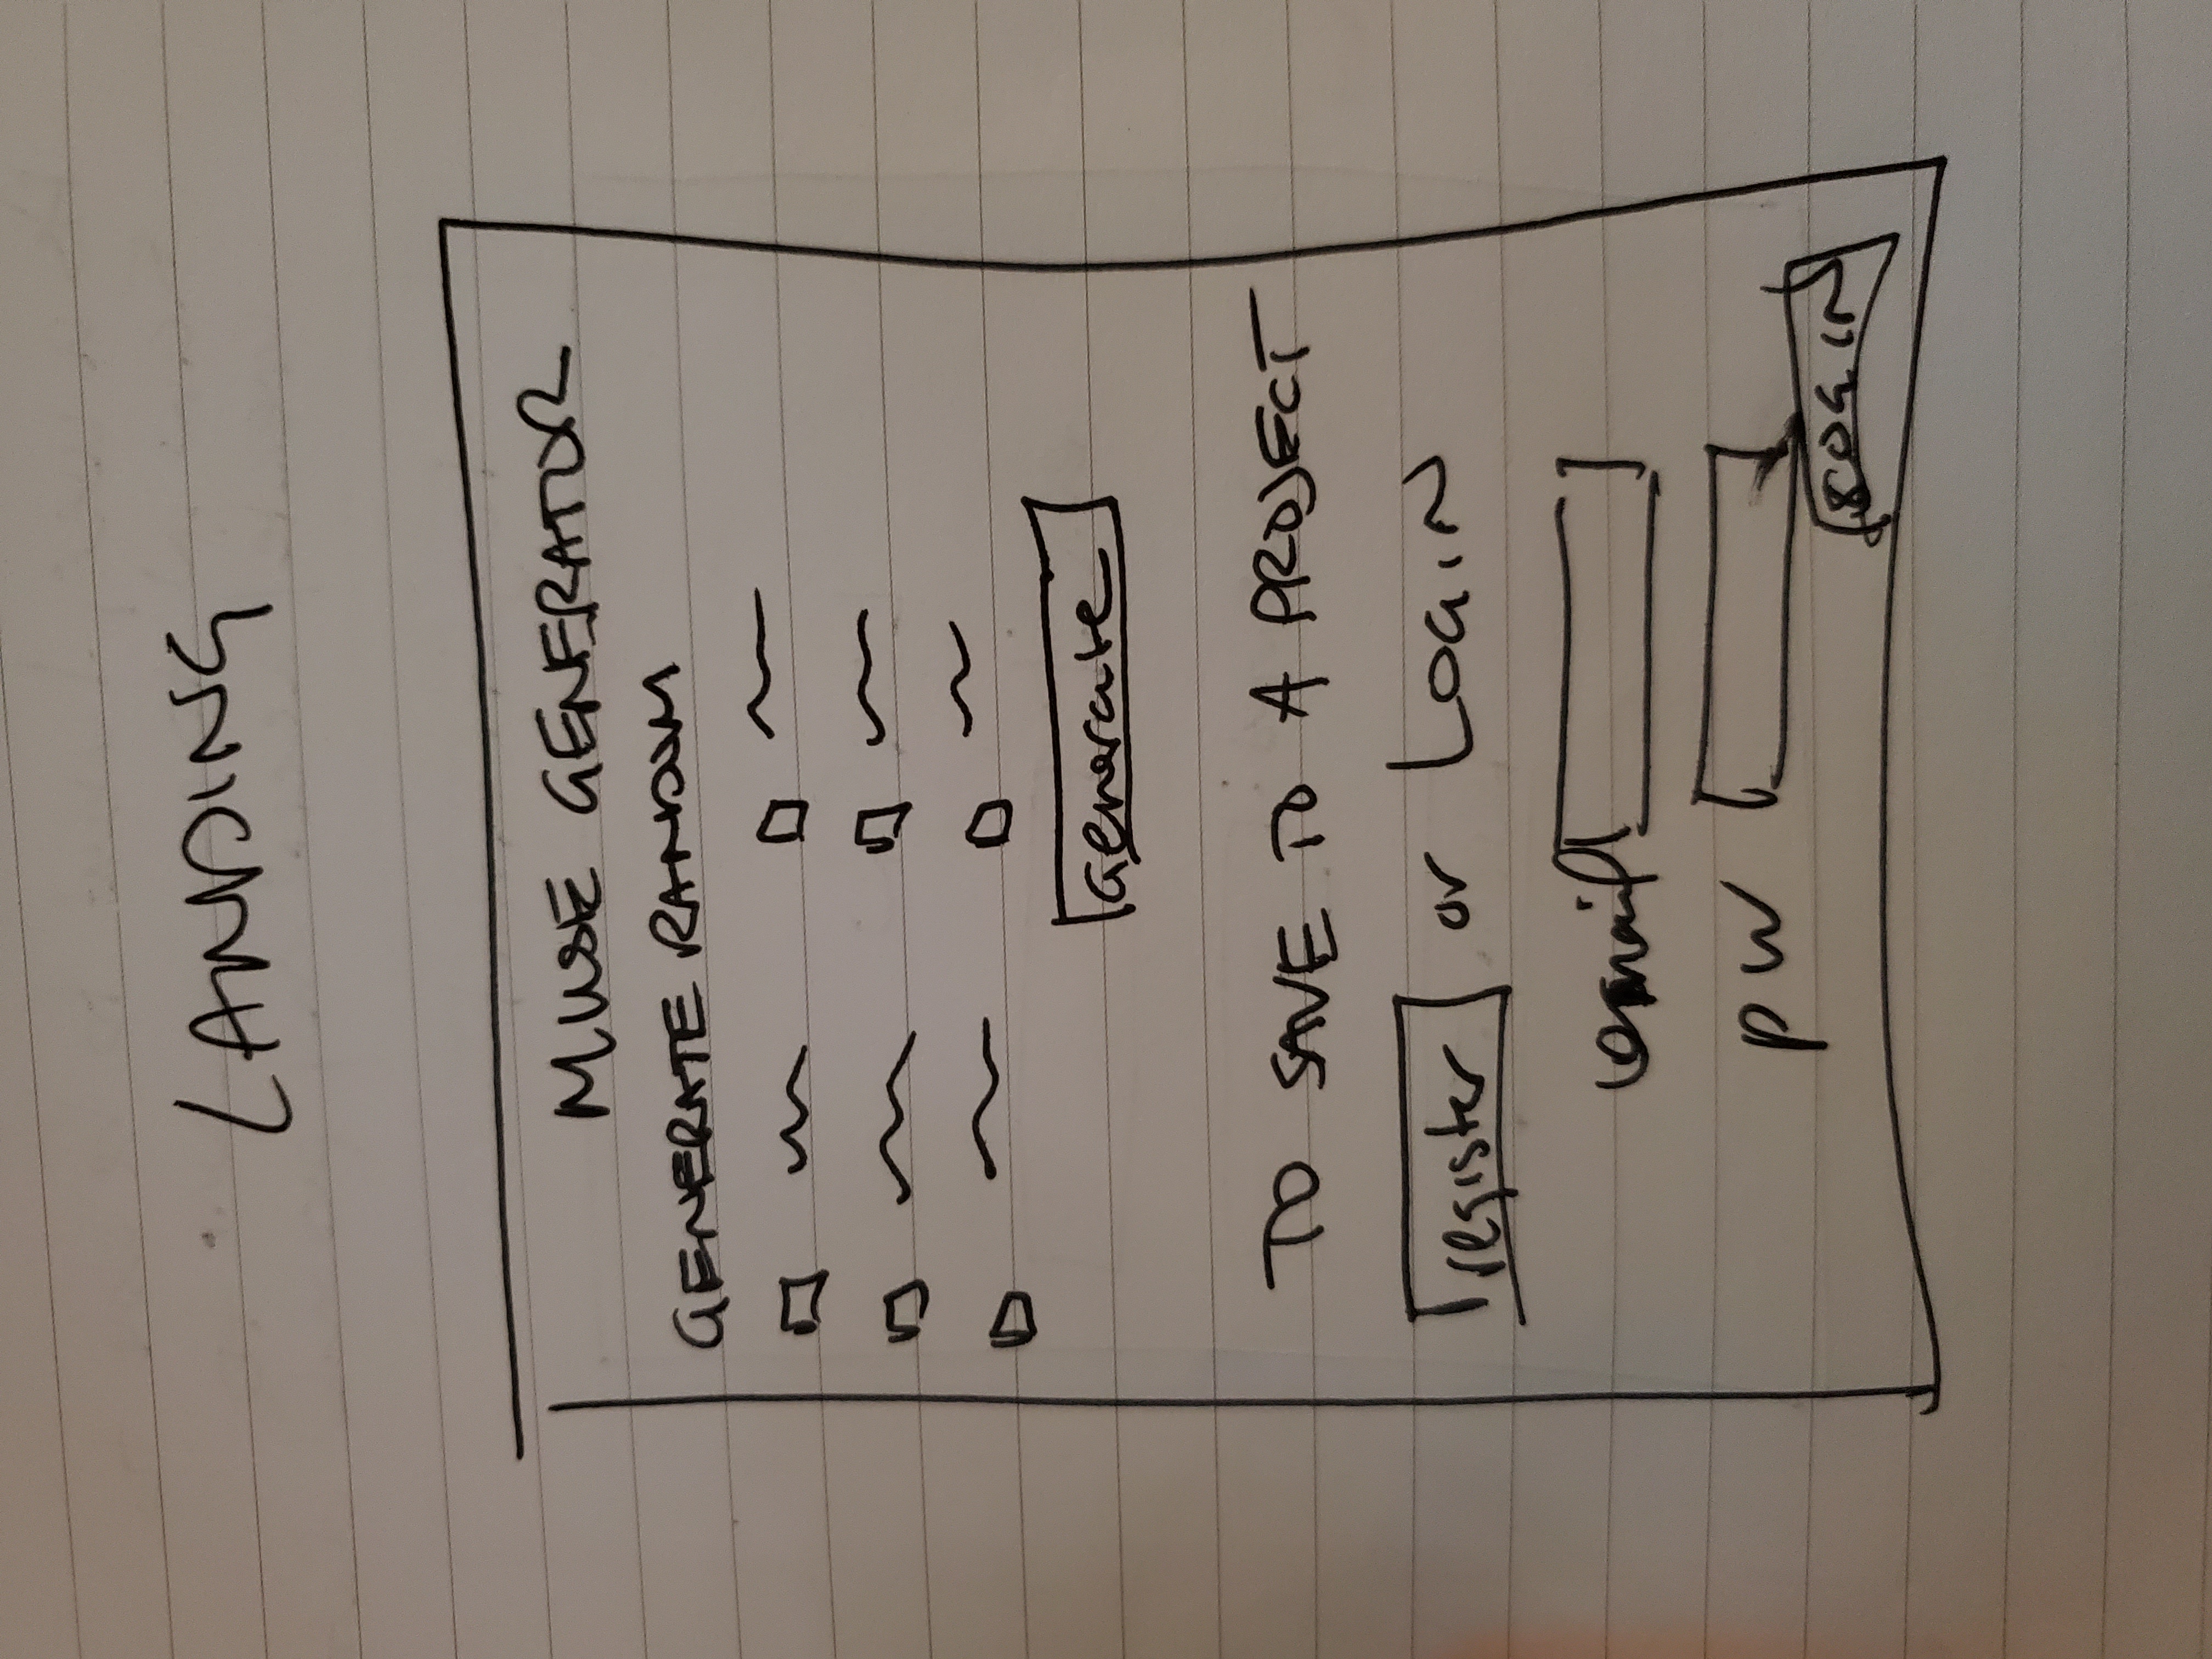 LANDING
MUSE GENERATOR
GENERATE RANDOM
Generate
TO SAVE TO A PROJECT
register or LOGIN
email
pw
LOGIN